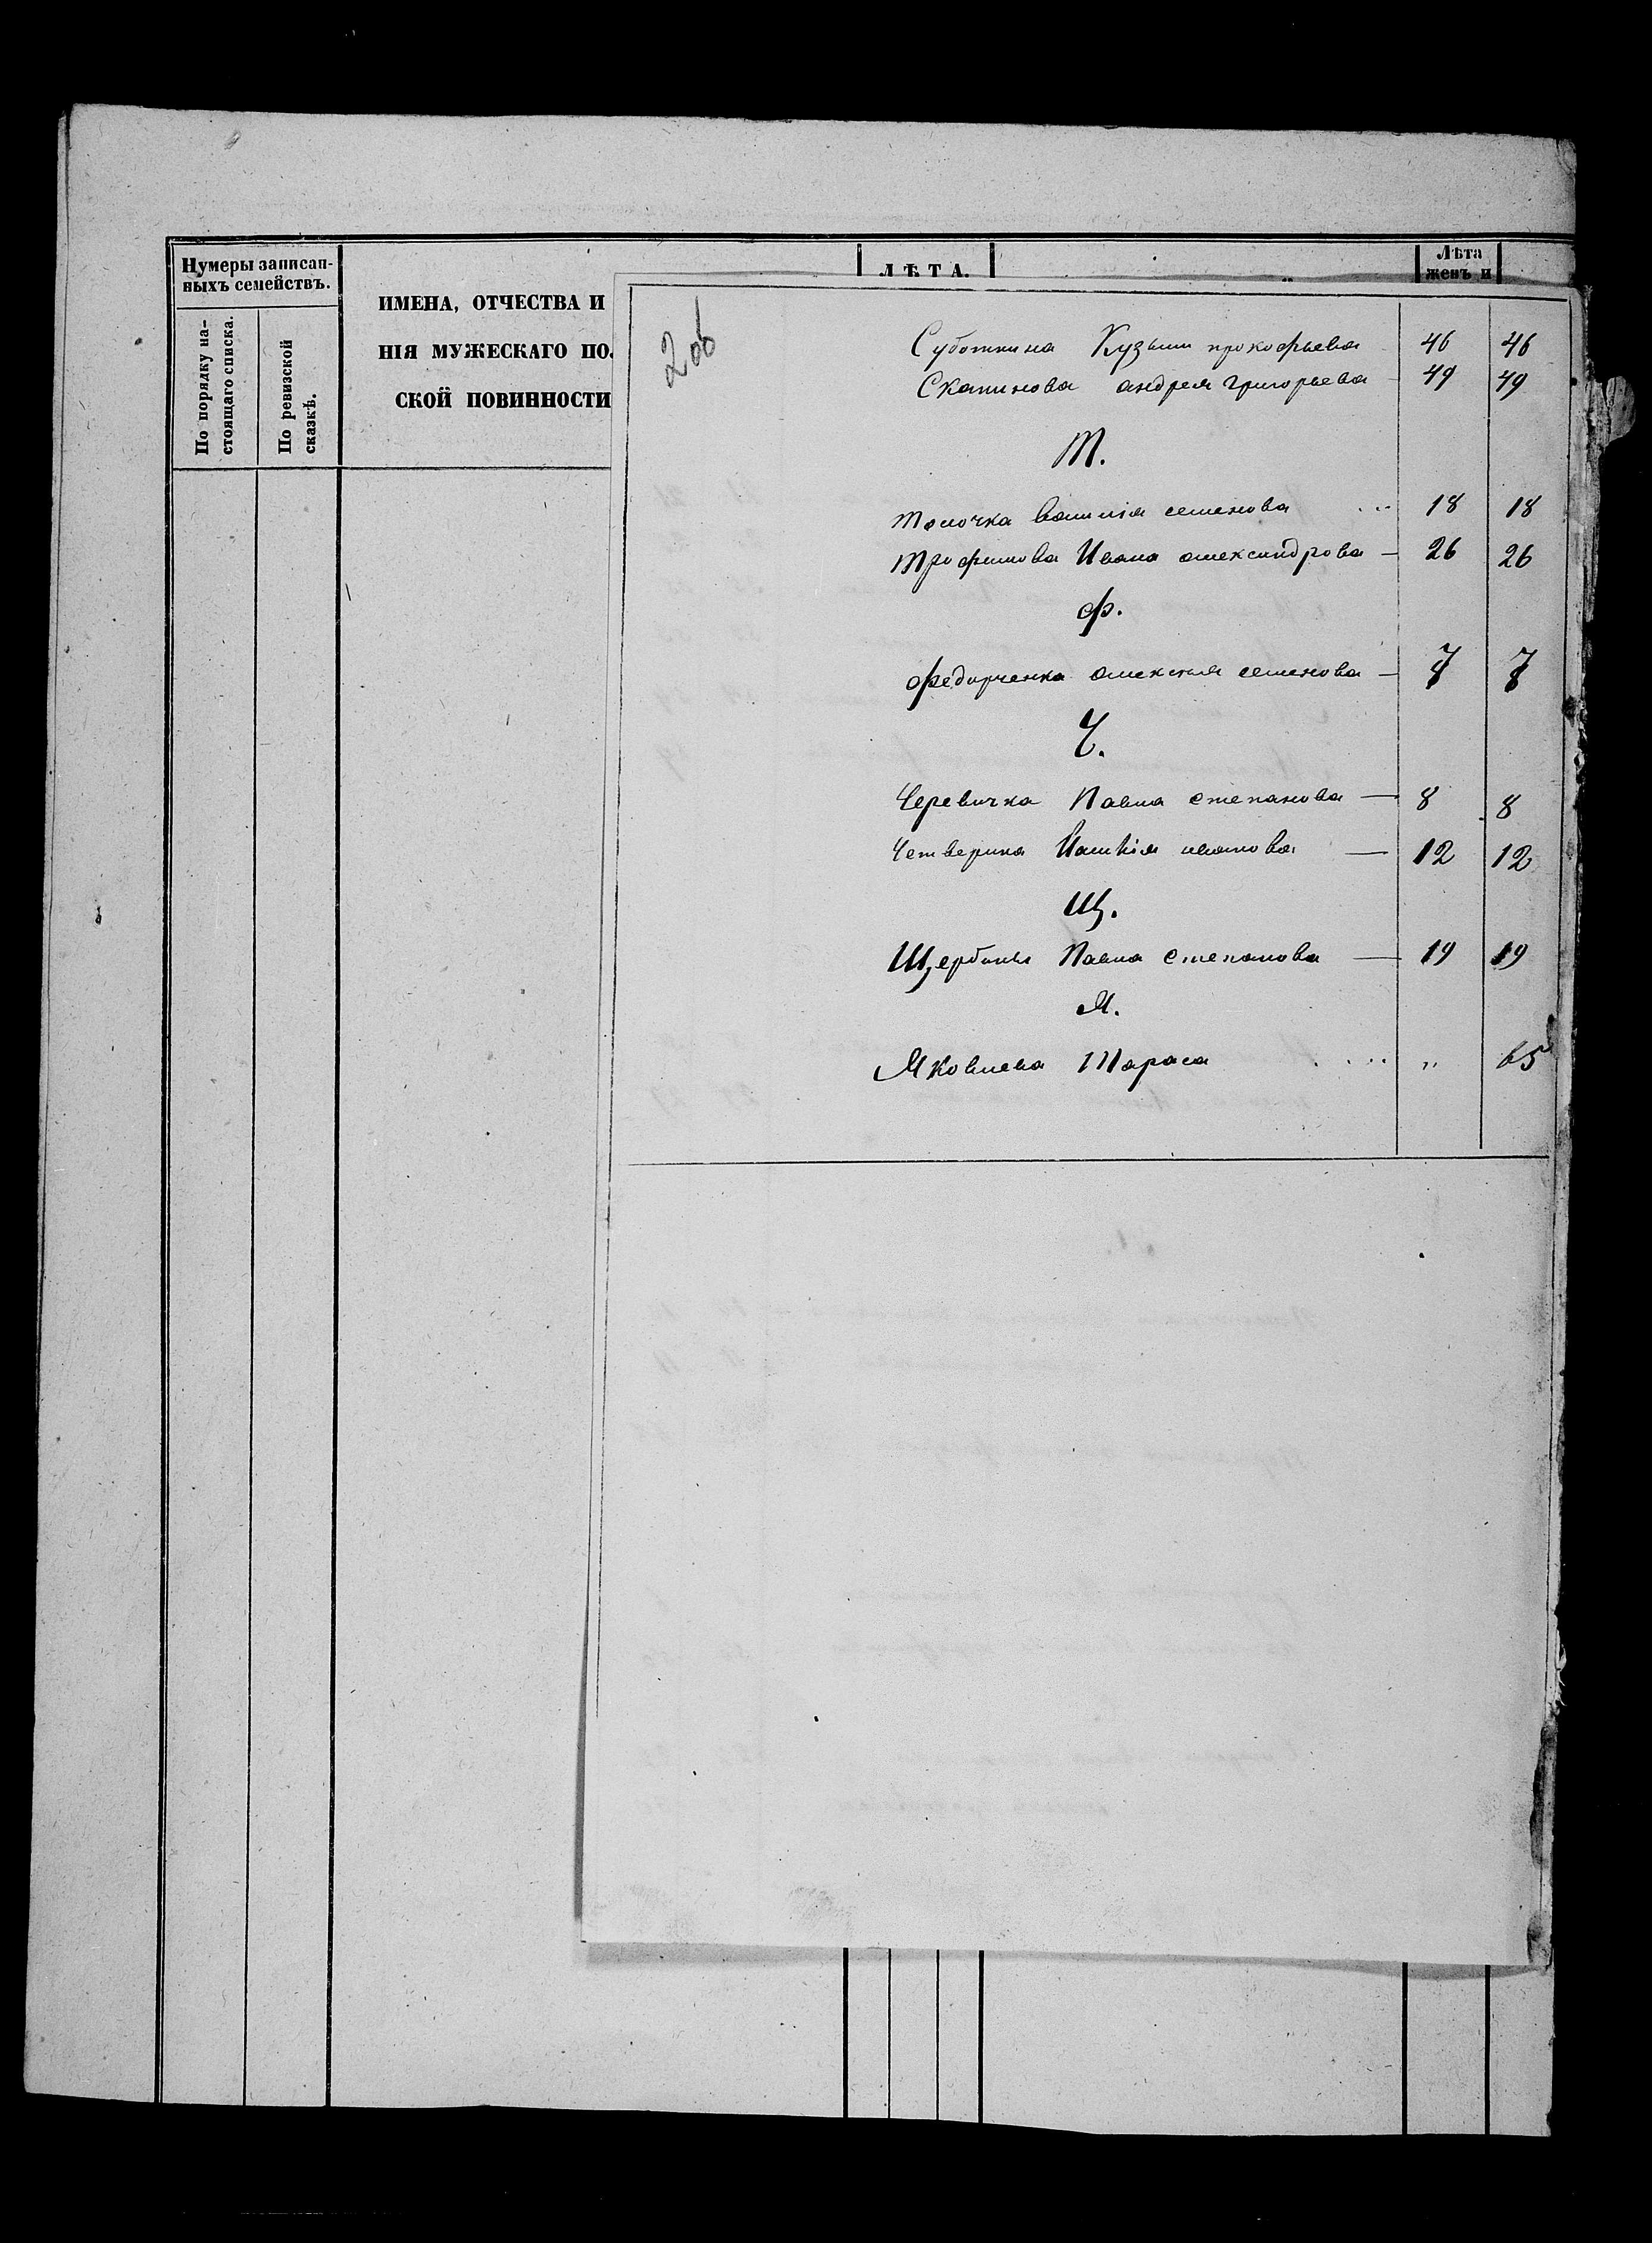 Нумеры записан-
ныхъ семействъ.
По порядку на-
стоящаго списка.
По ревизской
сказкѣ.
ИМЕНА, ОТЧЕСТВА И
НІЯ МУЖЕСКАГО ПО
СКОЙ ПОВИННОСТИ
ЛѢТА.
Лѣта
женъ и
2об
Суботкина Кузьмы прокофьева 46 46
Скапинова андрея григорьева 49 49
Т.
Толочка Василія семенова 18 18
Трофимова Ивана александрова — 26 26
Ф.
Федорченка алексѣя семенова — 7 7
Ч.
Черевичка Павла степанова — 8 8
Четверика иванова — 12 12
Щ.
Щербины Павла степанова — 19 19
Я.
Яковлева Тараса „ 65